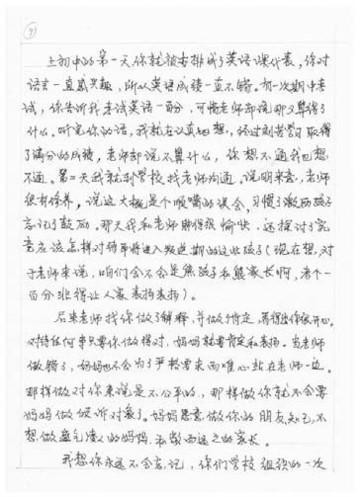 上初中的第一天你就被安排成了英语课代表，你对
语言一直感兴趣，所以英语成绩一直不错。有一次期中考
试，你告诉我考试英语一百分，可惜老师却说那又算得了
什么。听完你的话，我就在认真的想，经过刻苦学习取得
了满分的成绩，老师却说不算什么，你想不通我也想
不通。第二天我就到学校找老师沟通。说明来意，老师
很有修养，说这大概是个唉嘴的误会，习惯了激励孩子
忘记了鼓励。那天我和老师聊得很愉快，还探讨了究
竟应该怎样对待即将进入叛逆期的这些孩子（现在想，对
于老师来说，咱们会不会是熊孩子和熊家长啊，考个一
百分非得让人家表扬表扬）。
后来老师找你做了解释，并做了肯定，看得出你很开心。
对待任何事只要你做得对，妈妈就肯定和表扬。当老师
做错了，妈妈也不会为了严格要求而唯心站在老师一边。
那样做对你来说是不公平的，那样做你就不会
妈妈做倾诉对象了。妈妈愿意做你的朋友知己，不
想做盛气凌人的妈妈和敬而远之的家长。
我想你永远不会忘记，你们学校组织的一次